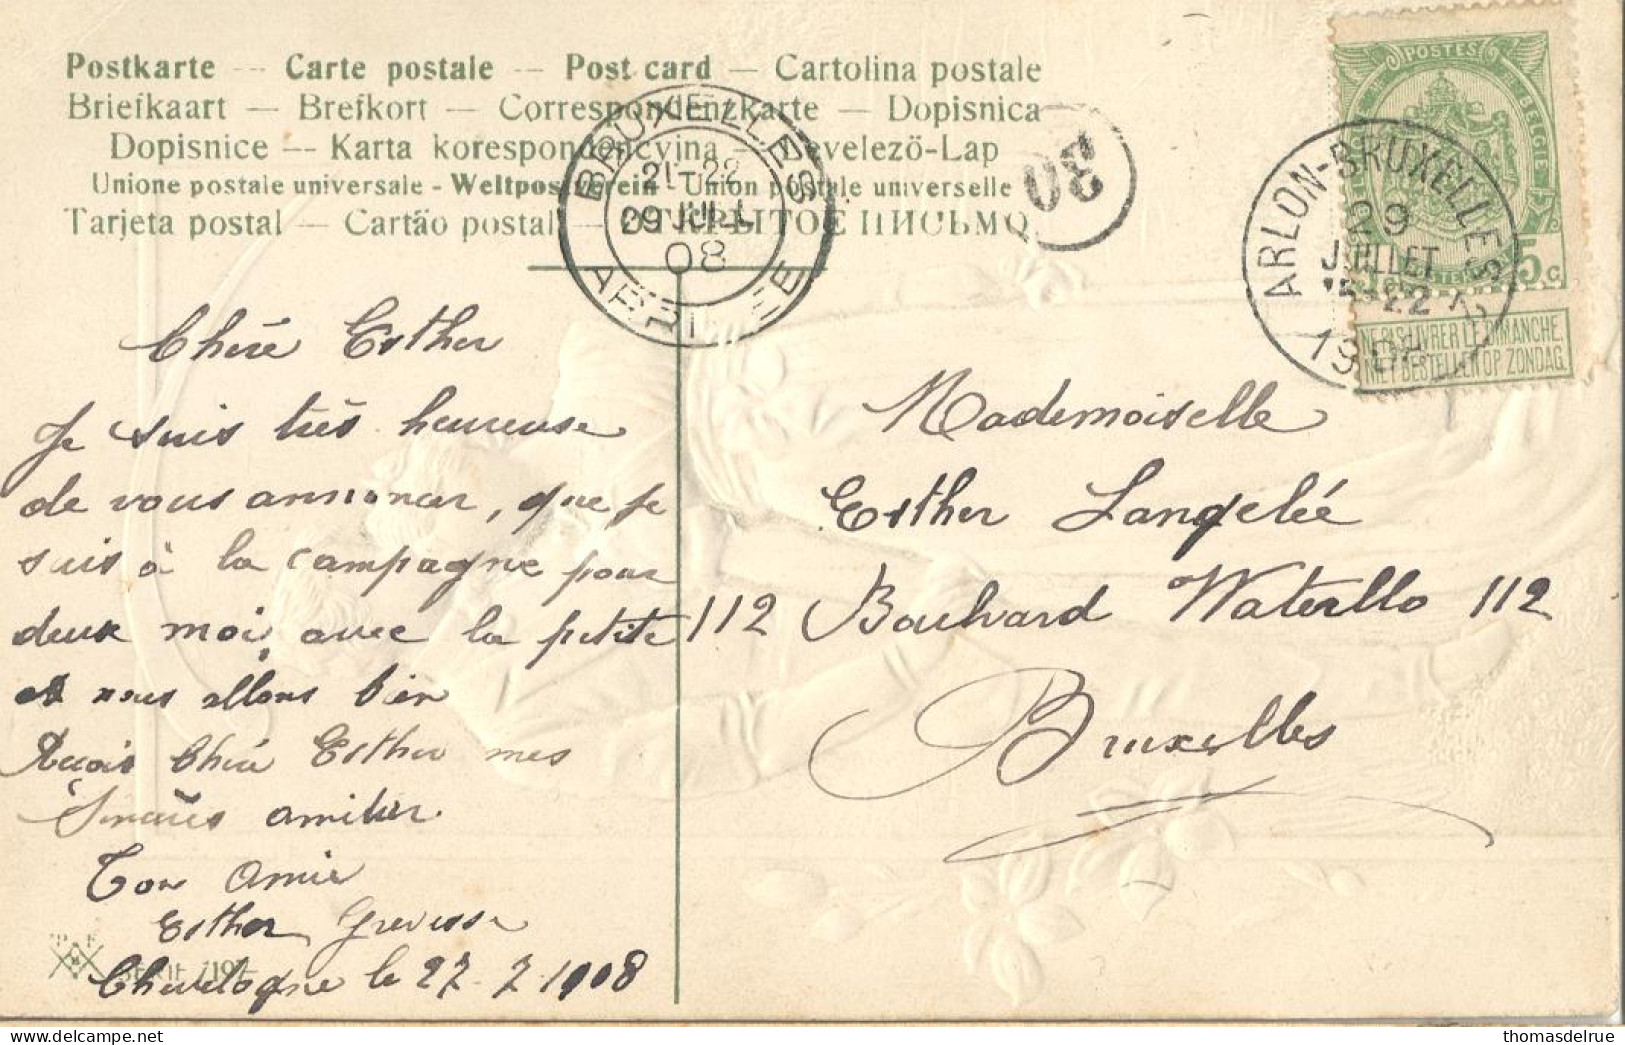 Postkarte — Carte postale — Post card — Cartolina postale
Briefkaart — Brefkort — Correspondenzkarte — Dopisnica
Dopisnice — Karta korespondencyjna — Levelező-Lap
Unione postale universale - Weltpostverein - Union postale universelle
Tarjeta postal — Cartão postal — ОТКРЫТОЕ ПИСЬМО
BRUXELLES
21-22
29 JUILL
08
ARRIVÉE
30
POSTES
BELGIE
5 c.
NE PAS LIVRER LE DIMANCHE.
NIET BESTELLEN OP ZONDAG.
ARLON-BRUXELLES 2
29
JUILLET
1908
Chère Esther
Je suis très heureuse
de vous annoncer, que je
suis à la campagne pour
deux moi, avec la petite
et nous allons bien
Reçois Chère Esther mes
Sincères amitier
Ton Amie
Esther Grevesse
le 27-7-1908
SERIE
112
Mademoiselle
Esther Langelée
Boulvard Waterllo 112
Bruxelles
thomasdelrue